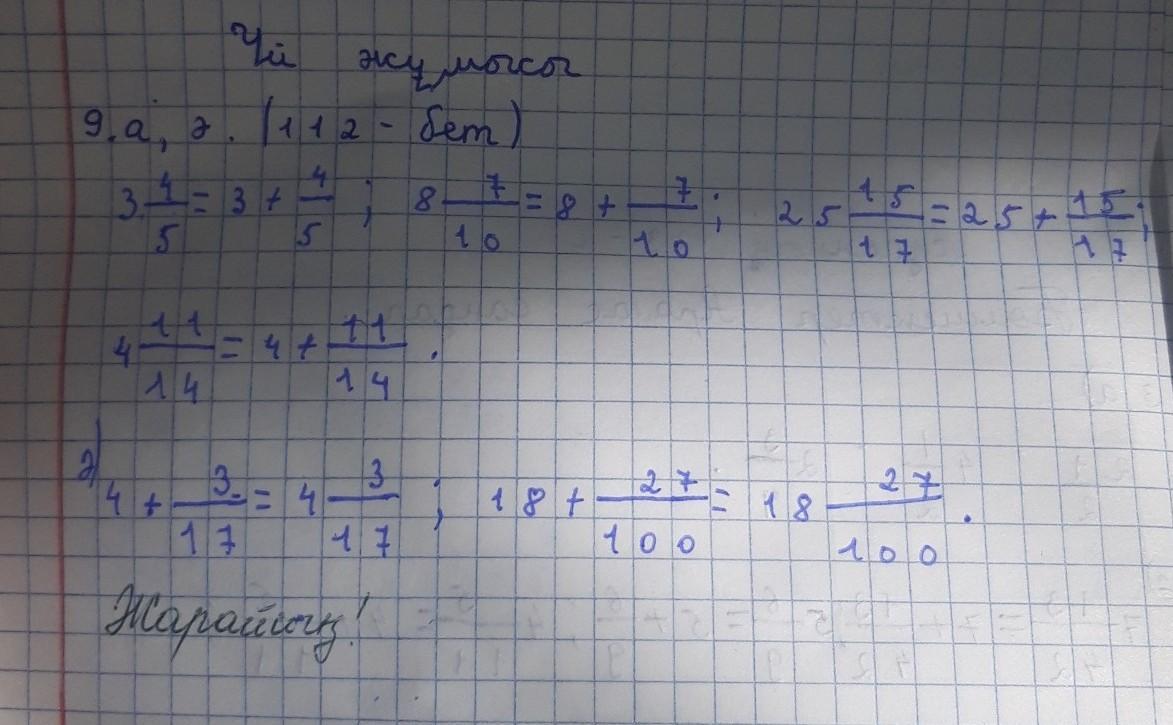 Үй жұмысы
9.а, ә. (112-бет)
3 4/5 = 3 + 4/5 ; 8 7/10 = 8 + 7/10 ; 25 15/17 = 25 + 15/17 ;
4 11/14 = 4 + 11/14 .
ә) 4 + 3/17 = 4 3/17 ; 18 + 27/100 = 18 27/100 .
Жарайсың!